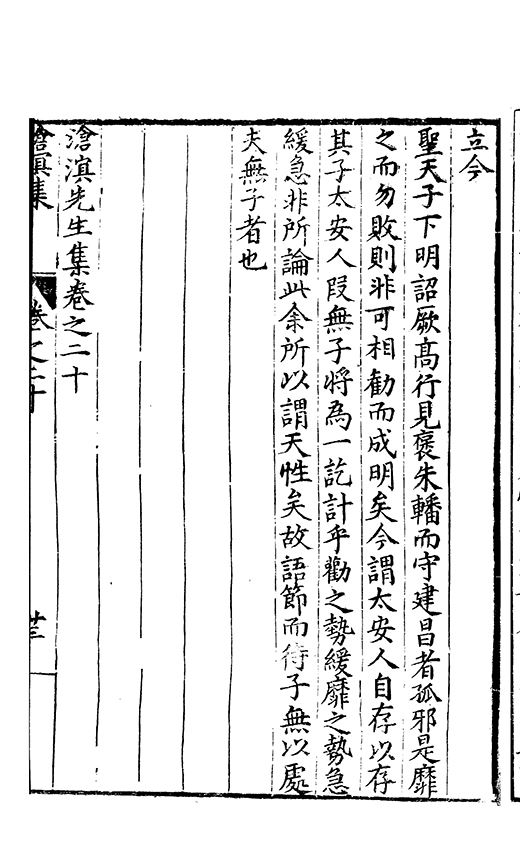 立今
聖天子下明詔厥髙行見褒朱轓而守建昌者孤邪是靡
之而勿敗則非可相勸而成明矣今謂太安人自存以存
其子太安人叚無子將為一訖計乎勸之勢緩靡之勢急
緩急非所論此余所以謂天性矣故語節而待子無以處
夫無子者也
滄溟先生集卷之二十
滄溟集
卷之二十